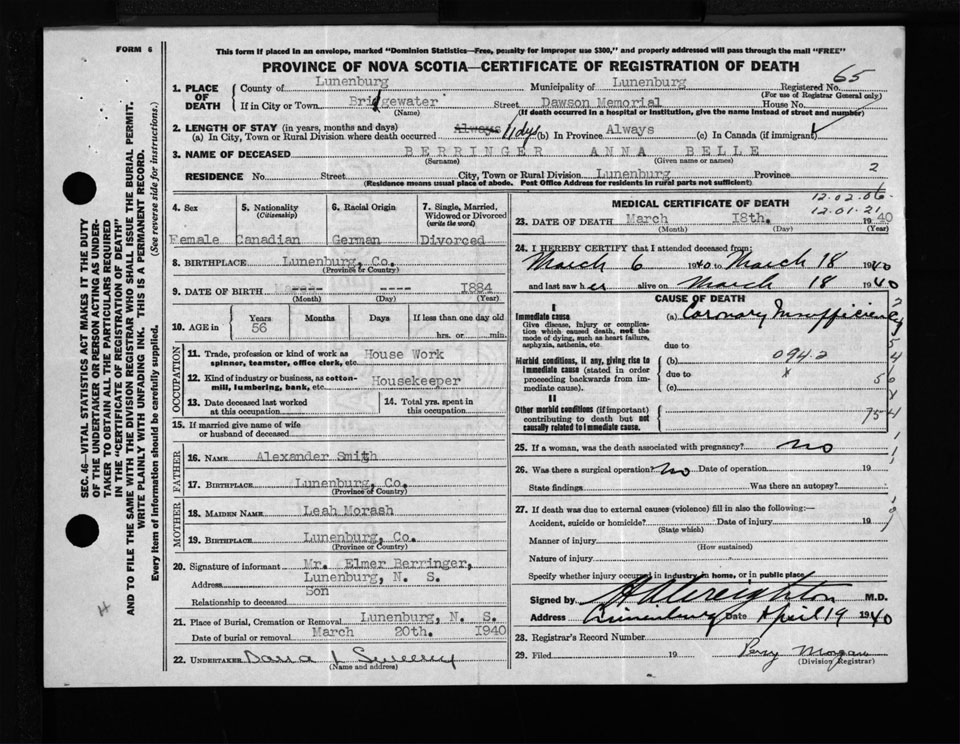 FORM 6
This form if placed in an envelope, marked "Dominion Statistics—Free, penalty for improper use $300," and properly addressed will pass through the mail "FREE"
PROVINCE OF NOVA SCOTIA—CERTIFICATE OF REGISTRATION OF DEATH
65
1. PLACE OF DEATH County of Lunenburg Municipality of Lunenburg Registered No.
(For use of Registrar General only)
If in City or Town Bridgewater Street Dawson Memorial House No.
(Name) (If death occurred in a hospital or institution, give the name instead of street and number)
2. LENGTH OF STAY (in years, months and days)
(a) In City, Town or Rural Division where death occurred Always 11dys (b) In Province Always (c) In Canada (if immigrant)
3. NAME OF DECEASED BERRINGER ANNA BELLE
(Surname) (Given name or names)
2
RESIDENCE No. Street City, Town or Rural Division Lunenburg Province
(Residence means usual place of abode. Post Office Address for residents in rural parts not sufficient)
SEC. 46—VITAL STATISTICS ACT MAKES IT THE DUTY
OF THE UNDERTAKER OR PERSON ACTING AS UNDER-
TAKER TO OBTAIN ALL THE PARTICULARS REQUIRED
IN THE "CERTIFICATE OF REGISTRATION OF DEATH"
AND TO FILE THE SAME WITH THE DIVISION REGISTRAR WHO SHALL ISSUE THE BURIAL PERMIT.
WRITE PLAINLY WITH UNFADING INK. THIS IS A PERMANENT RECORD.
Every item of information should be carefully supplied. (See reverse side for instructions.)
H
4. Sex 5. Nationality 6. Racial Origin 7. Single, Married,
(Citizenship) Widowed or Divorced
(write the word)
Female Canadian German Divorced
8. BIRTHPLACE Lunenburg, Co.
(Province or Country)
9. DATE OF BIRTH March ---- 1884
(Month) (Day) (Year)
10. AGE in Years Months Days If less than one day old
56 hrs. or min.
OCCUPATION
11. Trade, profession or kind of work as House Work
spinner, teamster, office clerk, etc
12. Kind of industry or business, as cotton-
mill, lumbering, bank, etc Housekeeper
13. Date deceased last worked 14. Total yrs. spent in
at this occupation this occupation
15. If married give name of wife
or husband of deceased
FATHER
16. NAME Alexander Smith
17. BIRTHPLACE Lunenburg, Co.
(Province or Country)
MOTHER
18. MAIDEN NAME Leah Morash
19. BIRTHPLACE Lunenburg, Co.
(Province or Country)
20. Signature of informant Mr. Elmer Berringer,
Address Lunenburg, N. S.
Relationship to deceased Son
21. Place of Burial, Cremation or Removal Lunenburg, N. S.
Date of burial or removal March 20th. 1940
22. UNDERTAKER Dana L Sweeny
(Name and address)
MEDICAL CERTIFICATE OF DEATH
12.02.06
12.01.21
23. DATE OF DEATH March 18th. 1940
(Month) (Day) (Year)
24. I HEREBY CERTIFY that I attended deceased from:
March 6 1940 to March 18 1940
and last saw her alive on March 18 1940
CAUSE OF DEATH
I
Immediate cause (a) Coronary Insufficiency
Give disease, injury or complica-
tion which caused death, not the
mode of dying, such as heart failure,
asphyxia, asthenia, etc.
due to
Morbid conditions, if any, giving rise to (b) 094.2
immediate cause (stated in order due to
proceeding backwards from im- (c)
mediate cause).
II
Other morbid conditions (if important)
contributing to death but not
causally related to immediate cause.
754
25. If a woman, was the death associated with pregnancy? No
26. Was there a surgical operation? No Date of operation 19
State findings Was there an autopsy?
27. If death was due to external causes (violence) fill in also the following:—
Accident, suicide or homicide? Date of injury 19
(State which)
Manner of injury
(How sustained)
Nature of injury
Specify whether injury occurred in industry, in home, or in public place
Signed by H A Creighton M.D.
Address Lunenburg Date April 19 1940
28. Registrar's Record Number
29. Filed 19 Percy Morgan
(Division Registrar)